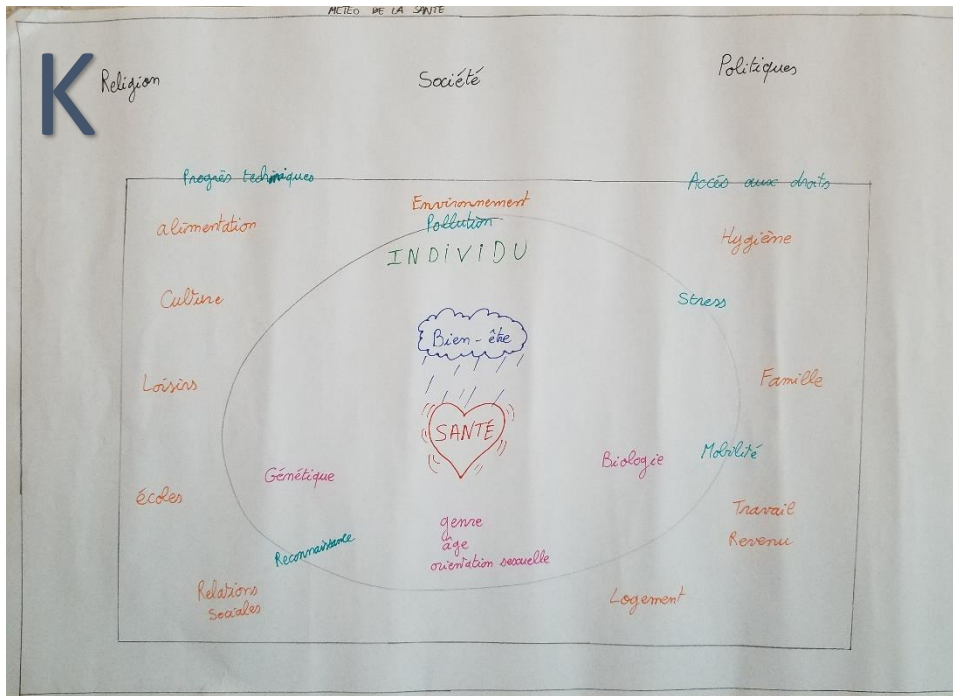 METEO DE LA SANTE
K
Religion
Société
Politiques
Progrès techniques
Accés aux droits
Environnement
Pollution
alimentation
Hygiène
INDIVIDU
Culture
Stress
Bien-être
Loisirs
Famille
SANTÉ
Génétique
Biologie
Mobilité
écoles
genre
âge
orientation sexuelle
Travail
Revenu
Reconnaissance
Relations
Sociales
Logement